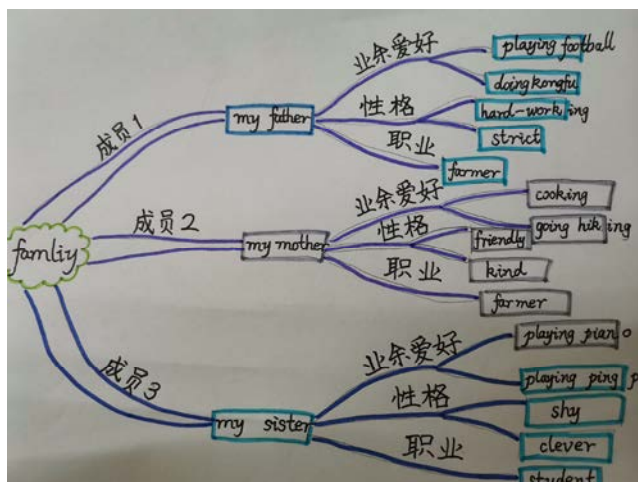 famliy
成员1
my father
业余爱好
playing football
doing kongfu
性格
hard-working
strict
职业
farmer
成员2
my mother
业余爱好
cooking
going hiking
性格
friendly
kind
职业
farmer
成员3
my sister
业余爱好
playing piano
playing ping p
性格
shy
clever
职业
student